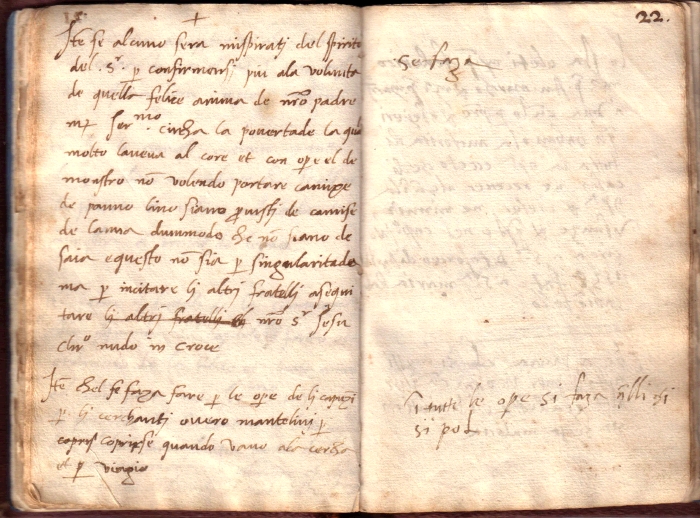 +
Ite se alcuno sera inspirati del spirito
del .S.r p confirmarsi piu ala volunta
de quella felice anima de nro padre
mr Jermo. circha la povertade la qual
molto laveva al core et con ope el de
monstro nō volendo portare camixe
de panno lino siano pvisti de camise
de lanna dummodo che nō siano de
saia e questo nō sia p singularitade
ma p incitare li altri fratelli asequi
tare li altri fratelli nro Sr Jesu
chro nudo in croce
Ite chel se faza fare p le ope de li capuzi
p li cerchanti overo mantelini p
coprirse quando vano ala cercha
et p viagio
22.
se faza
ī tutte le ope si faza si
si pol